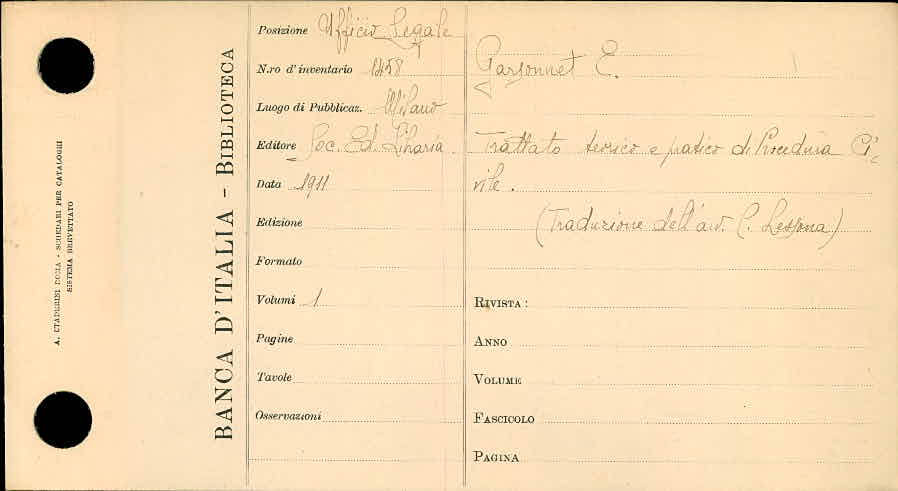 A. STADERINI ROMA - SCHEDARI PER CATALOGHI
SISTEMA BREVETTATO
BANCA D'ITALIA - BIBLIOTECA
Posizione Ufficio Legale
N.ro d'inventario 1458
Luogo di Pubblicaz. Milano
Editore Soc. Ed. Libraria.
Data 1911
Edizione
Formato
Volumi 1
Pagine
Tavole
Osservazioni
Garsonnet E.
Trattato teorico e pratico di Procedura Ci-
vile.
(Traduzione dell'avv. C. Lessona)
RIVISTA:
ANNO
VOLUME
FASCICOLO
PAGINA